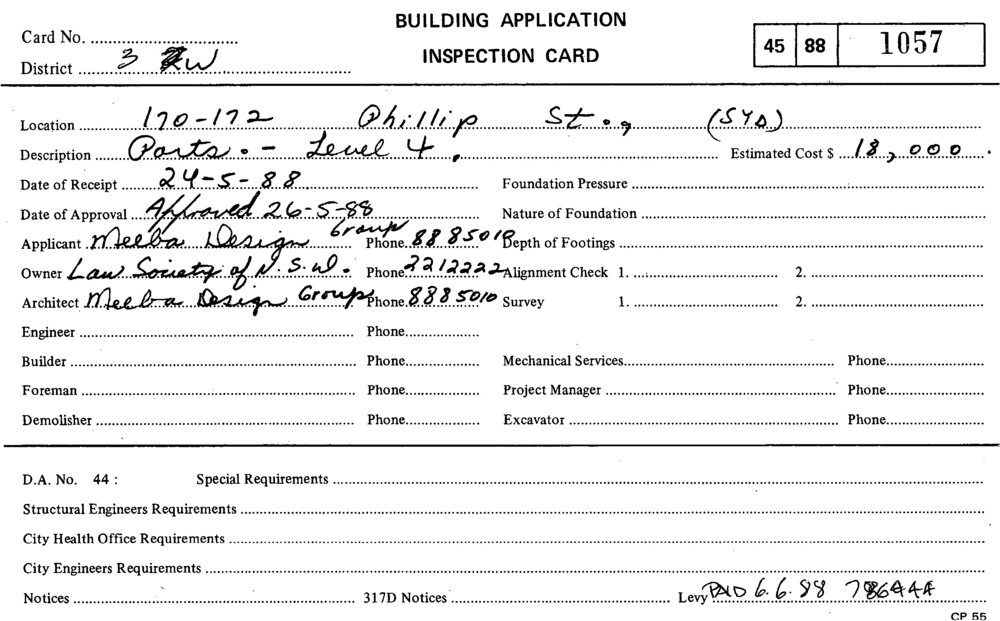 BUILDING APPLICATION
INSPECTION CARD
Card No. ....................................
District ...... 3 ... W ....................................
45 88 1057
Location ............ 170-172 Phillip St., (SYD) ............
Description ...... Parts. - Level 4. ............ Estimated Cost $ ... 18,000 ...
Date of Receipt ...... 24-5-88 ............ Foundation Pressure ....................................
Date of Approval ... Approved 26-5-88 ............ Nature of Foundation ....................................
Applicant Meeba Design Group Phone. 8885010 Depth of Footings ....................................
Owner Law Society of N.S.W. Phone 2212222 Alignment Check 1. .................................... 2. ....................................
Architect Meeba Design Group Phone. 8885010 Survey 1. .................................... 2. ....................................
Engineer .................................... Phone....................
Builder .................................... Phone.................... Mechanical Services.................................... Phone....................
Foreman .................................... Phone.................... Project Manager .................................... Phone....................
Demolisher .................................... Phone.................... Excavator .................................... Phone....................
D.A. No. 44 : Special Requirements ....................................
Structural Engineers Requirements ....................................
City Health Office Requirements ....................................
City Engineers Requirements ....................................
Notices .................................... 317D Notices .................................... Levy PAID 6.6.88 786444
CP 55